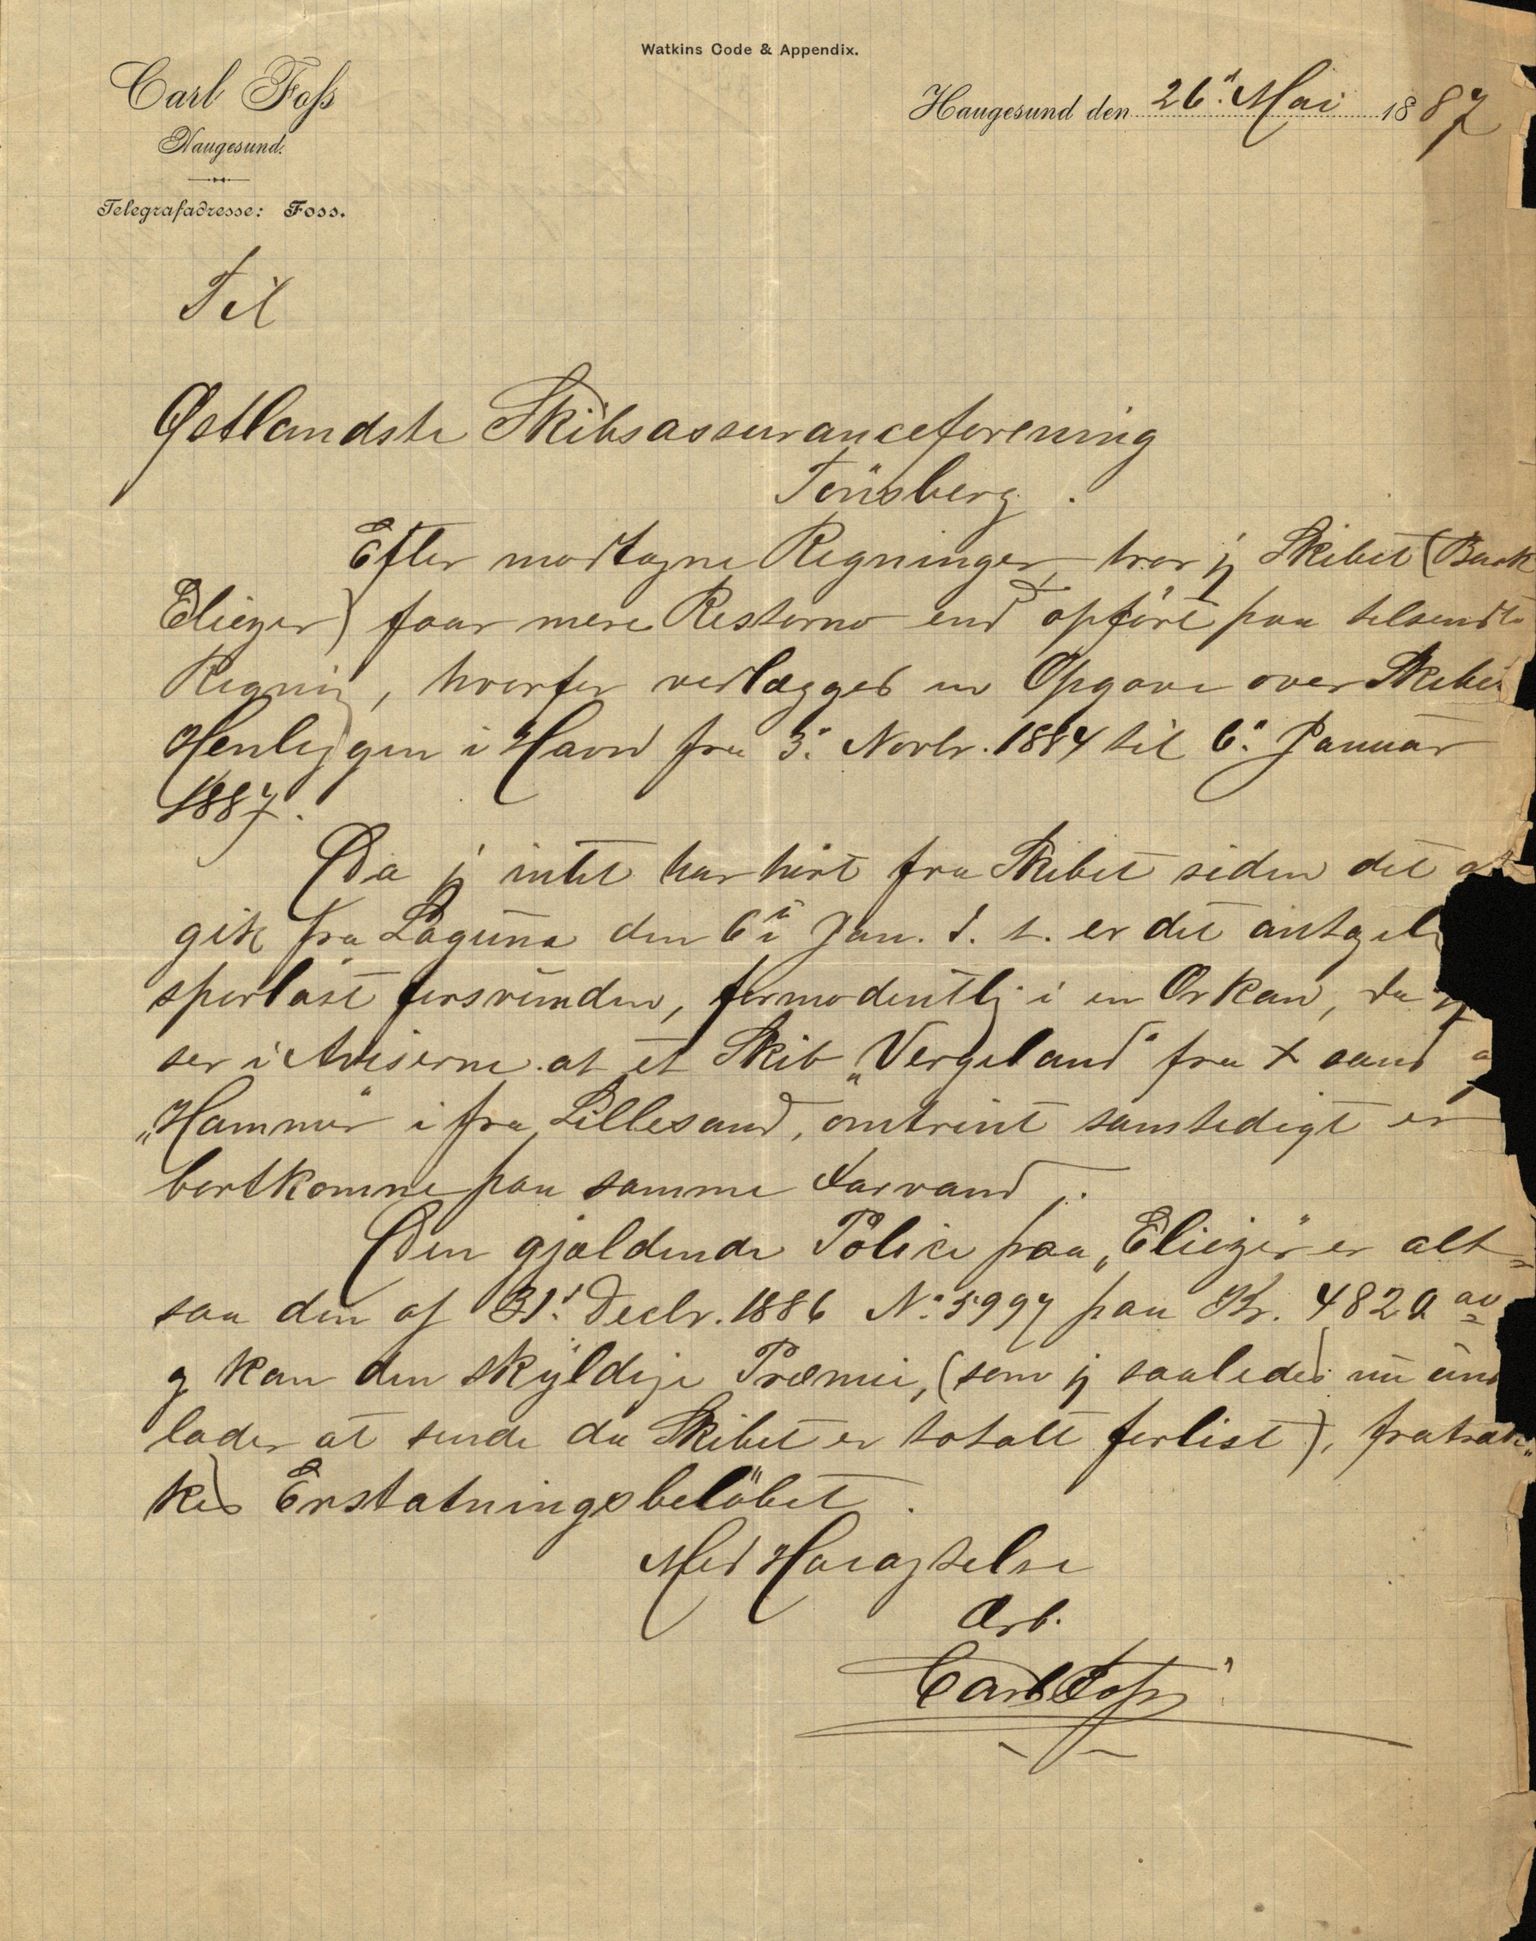 Watkins Code & Appendix.
Carl Foss
Haugesund.
Telegrafadresse: Foss.
Haugesund den 26' Mai 1887
Til
Østlandske Skibsassuranceforening
Tönsberg.
Efter modtagne Regninger, tror jeg Skibet (Bark
Eliezer) faar mere Restorno end opført paa tilsendte
Regning, hvorfor vedlægges en Opgave over Skibets
Henliggen i Havn fra 3' Novbr. 1884 til 6' Januar
1887.
Da jeg intet har hört fra Skibet siden det af
gik fra Laguna den 6' Jan. d. A. er det antagelig
sporlöst forsvunden, formodentlig i en Orkan, da jeg
ser i Aviserne at et Skib „Vergeland" fra X sand og
„Hammer" i fra Lillesand, omtrent samtidigt er
bortkomne paa samme Farvand.
Den gjældende Police paa „Eliezer" er alt-
saa den af 31' Decbr. 1886 No 5997 paa Kr. 4820
og kan den skyldige Præmie, (som jeg saaledes nu und
lader at sende da Skibet er totalt forlist), fratræk-
kes Erstatningsbelöbet.
Med Höiagtelse
Ærb.
Carl Foss